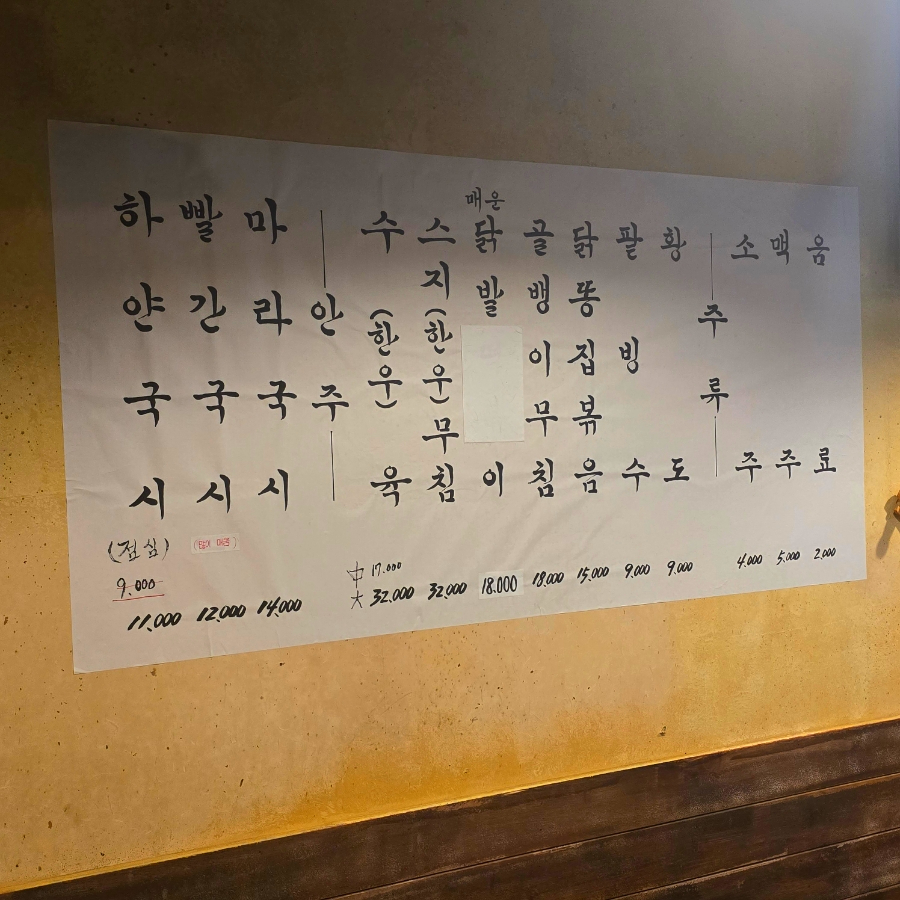 하얀국시
(점심)
9.000
11.000
빨간국시
(많이 매움)
12.000
마라국시
14.000
안주
수육(한우)
中 17.000
大 32.000
스지(한우)무침
32.000
매운
닭발이
18.000
골뱅이무침
18.000
닭똥집볶음
15.000
팥빙수
9.000
황도
9.000
주류
소주
4.000
맥주
5.000
음료
2.000